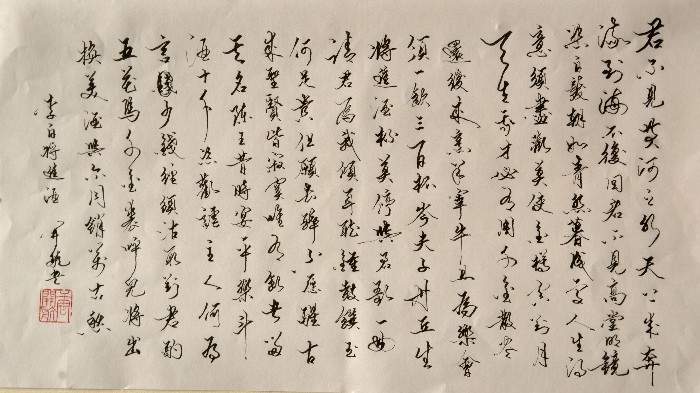 君不見黄河之水天上来奔
流到海不復回君不見高堂明鏡
悲白髮朝如青絲暮成雪人生得
意须盡歡莫使金樽空对月
天生我才必有用千金散尽
還復来烹羊宰牛且為樂會
须一飲三百杯岑夫子丹丘生
将進酒杯莫停與君歌一曲
请君為我倾耳聴鐘鼓饌玉
何足貴但願长醉不愿醒古
来聖賢皆寂寞唯有飲者留
其名陈王昔時宴平樂斗
酒十千恣歡謔主人何為
言少錢径须沽取对君酌
五花馬千金裘呼兒将出
换美酒與尔同銷萬古愁
李白将進酒